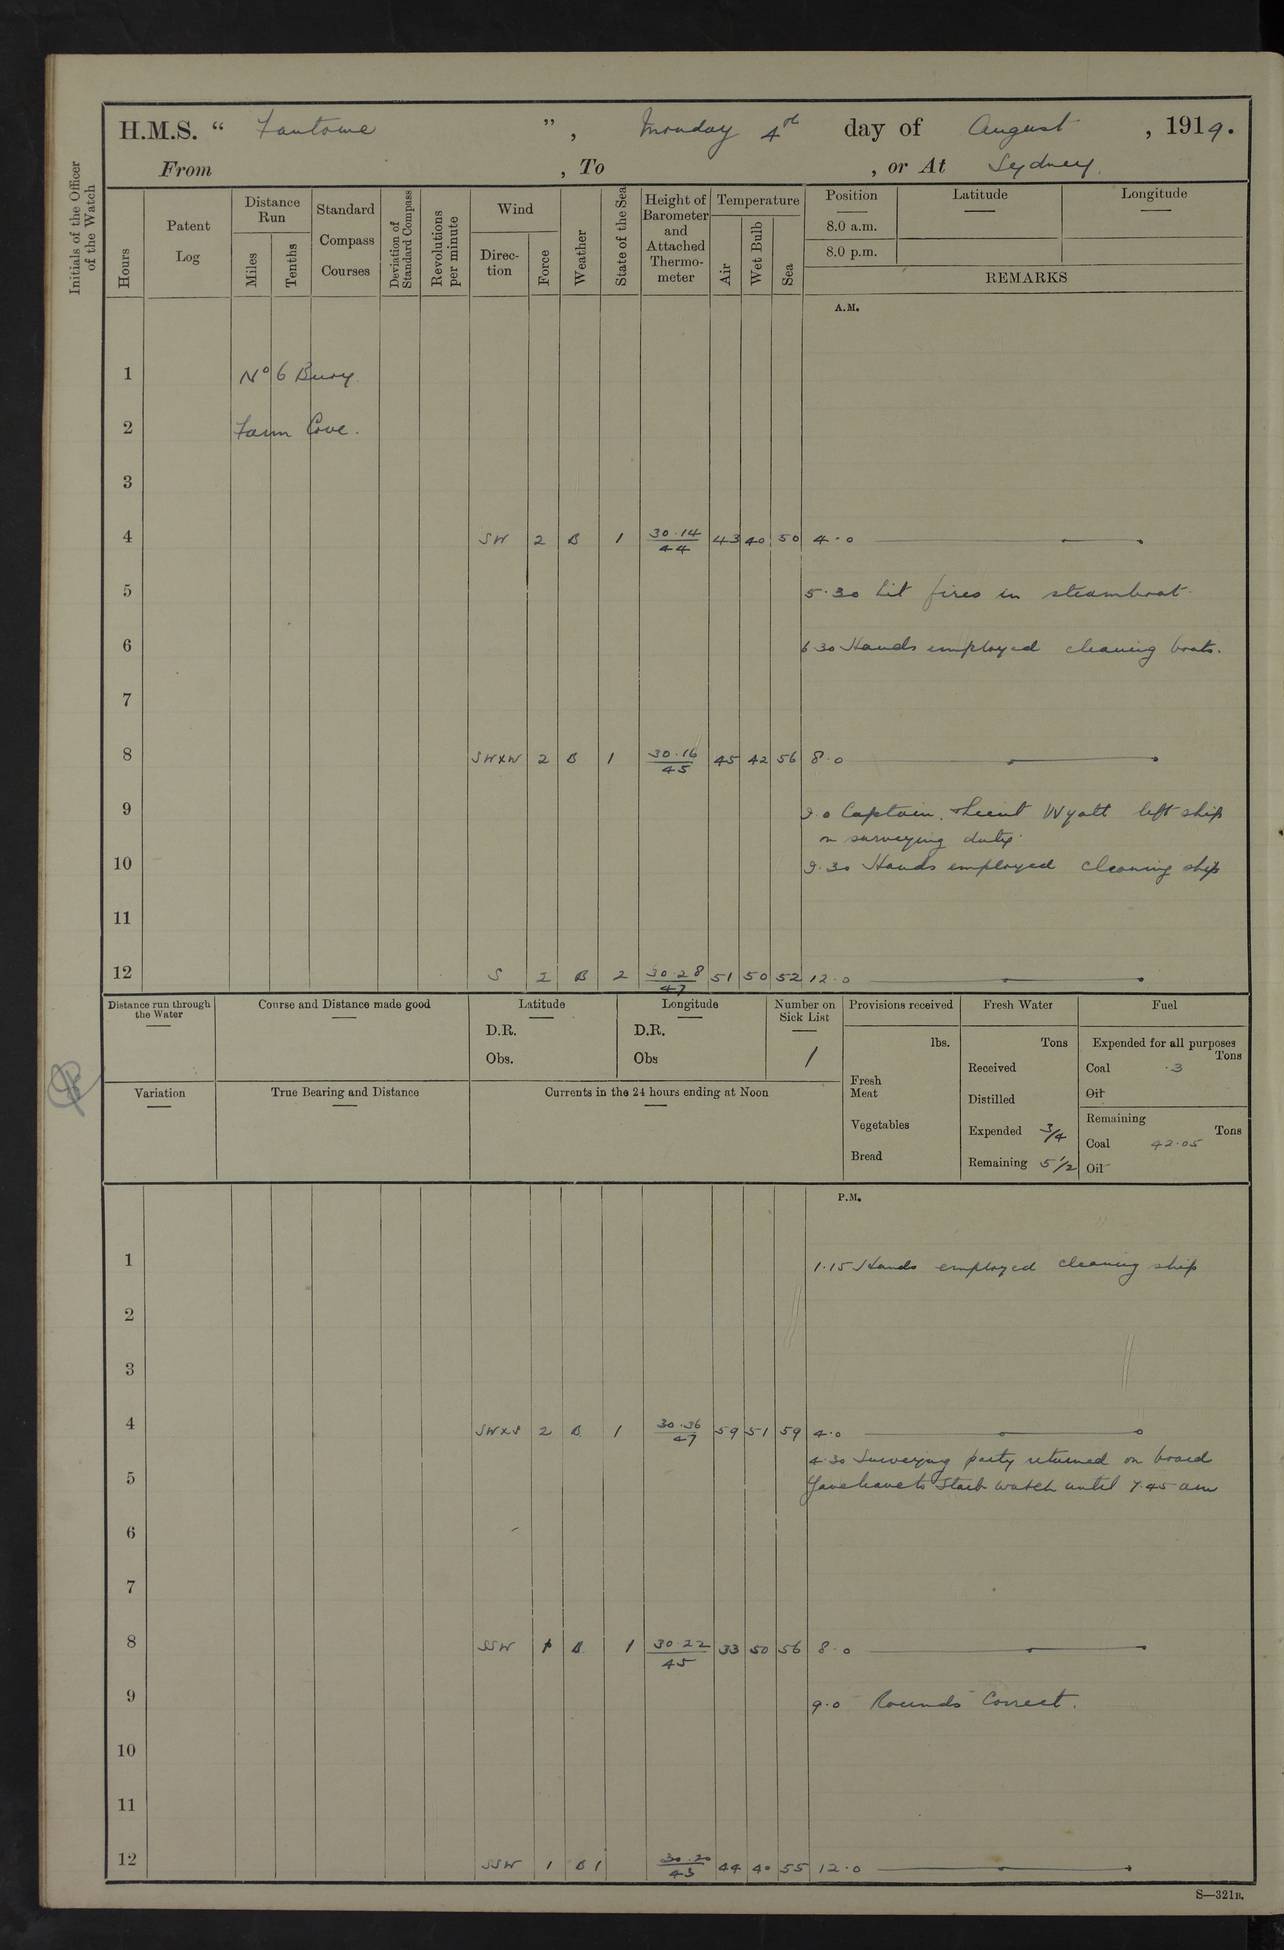 H.M.S. “ Fantome ”, Monday 4th day of August, 1919.
From , To , or At Sydney.
Initials of the Officer of the Watch
Hours
Patent Log
Distance Run
Miles
Tenths
Standard Compass Courses
Deviation of Standard Compass
Revolutions per minute
Wind
Direction
Force
Weather
State of the Sea
Height of Barometer and Attached Thermometer
Temperature
Air
Wet Bulb
Sea
Position Latitude Longitude
8.0 a.m.
8.0 p.m.
REMARKS
A.M.
1 No 6 Buoy
2 Farm Cove.
3
4 SW 2 B 1 30.14/44 43 40 50 4.0
5 5.30 Lit fires in steamboat.
6 6.30 Hands employed cleaning boats.
7
8 SWxW 2 B 1 30.16/45 45 42 56 8.0
9 9.0 Captain, & Lieut Wyatt left ship
on surveying duty.
10 9.30 Hands employed cleaning ship
11
12 S 2 B 2 30.28/47 51 50 52 12.0
Distance run through the Water
Course and Distance made good
Latitude
D.R.
Obs.
Longitude
D.R.
Obs
Number on Sick List
1
Provisions received
lbs.
Fresh Meat
Vegetables
Bread
Fresh Water
Tons
Received
Distilled
Expended 3/4
Remaining 5 1/2
Fuel
Expended for all purposes
Tons
Coal .3
Oil
Remaining
Tons
Coal 42.05
Oil
Variation
True Bearing and Distance
Currents in the 24 hours ending at Noon
P.M.
1 1.15 Hands employed cleaning ship
2
3
4 SWxS 2 B 1 30.36/47 59 51 59 4.0
4.30 Surveying party returned on board
5 Gave leave to Starb watch until 7.45 am
6
7
8 SSW 1 B 1 30.22/45 33 50 56 8.0
9 9.0 Rounds Correct.
10
11
12 SSW 1 B 1 30.20/43 44 40 55 12.0
S—321B.